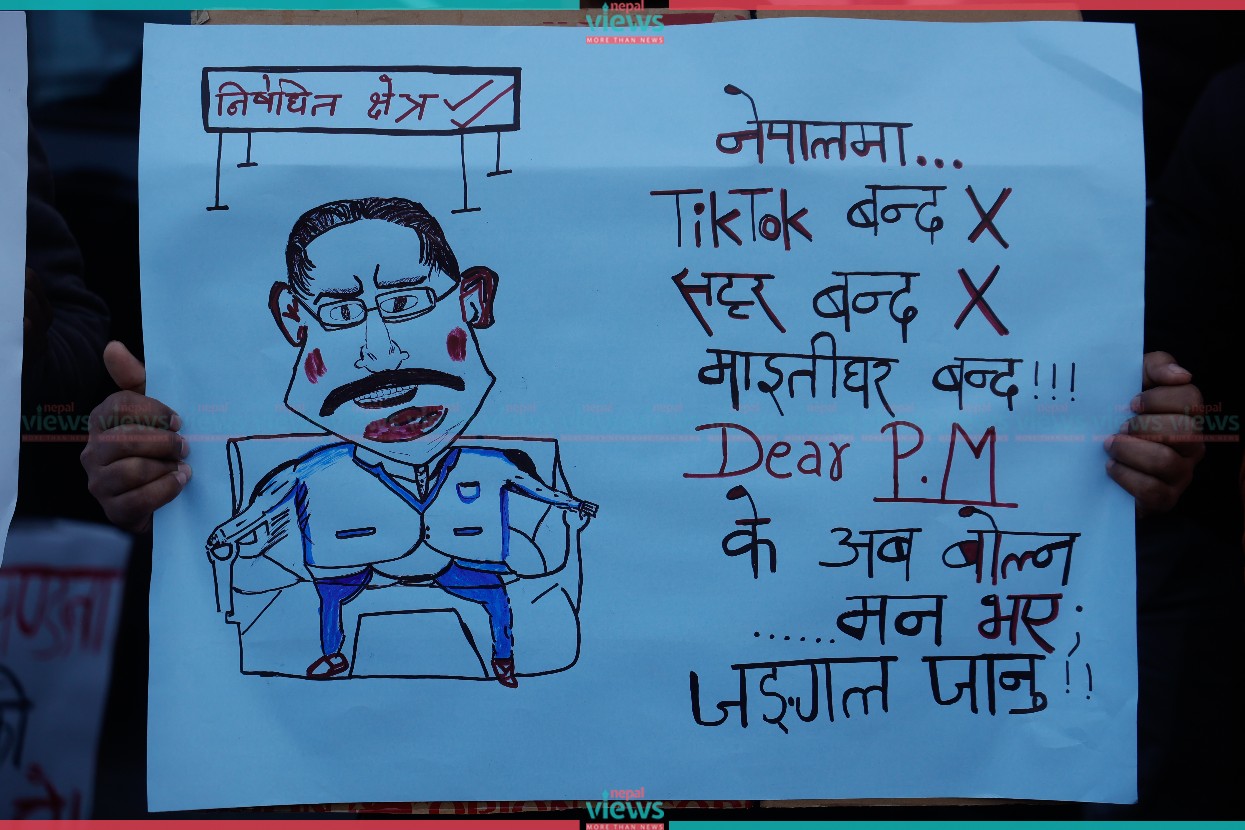 nepal
views
MORE THAN NEWS
निषेधित क्षेत्र
नेपालमा...
TikTok बन्द X
सट्टर बन्द X
माइतीघर बन्द!!!
Dear P.M
के अब बोल्न
......मन भए;
जङ्गल जानु!!
nepal
views
nepal
views
nepal
views
MORE THAN NEWS